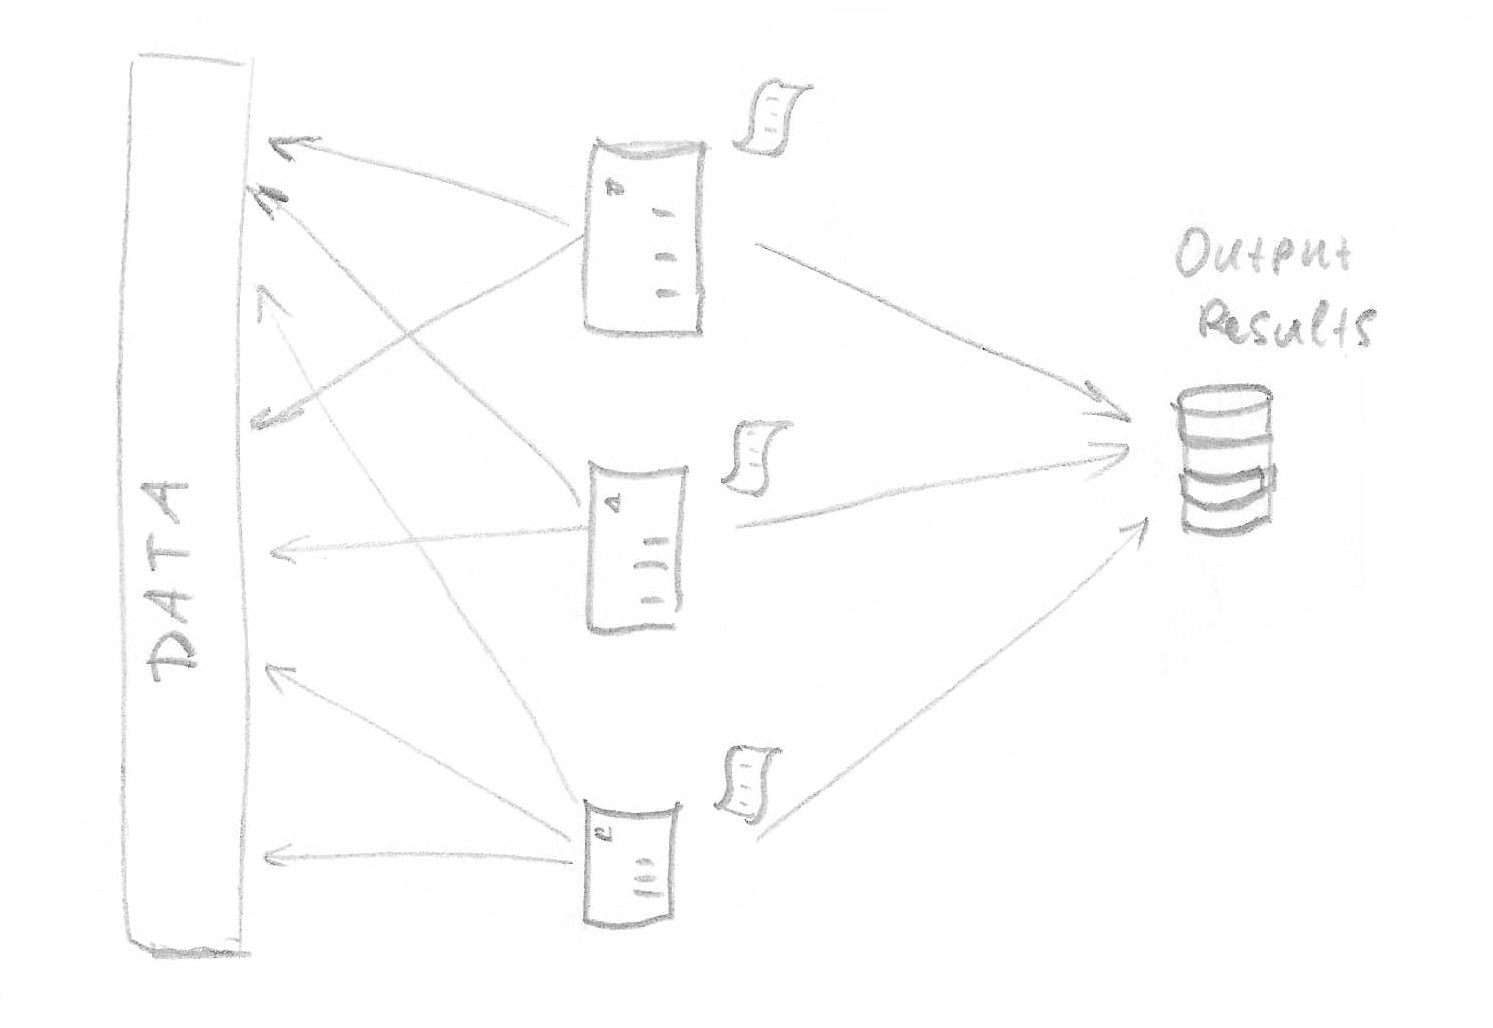 DATA
Output
Results